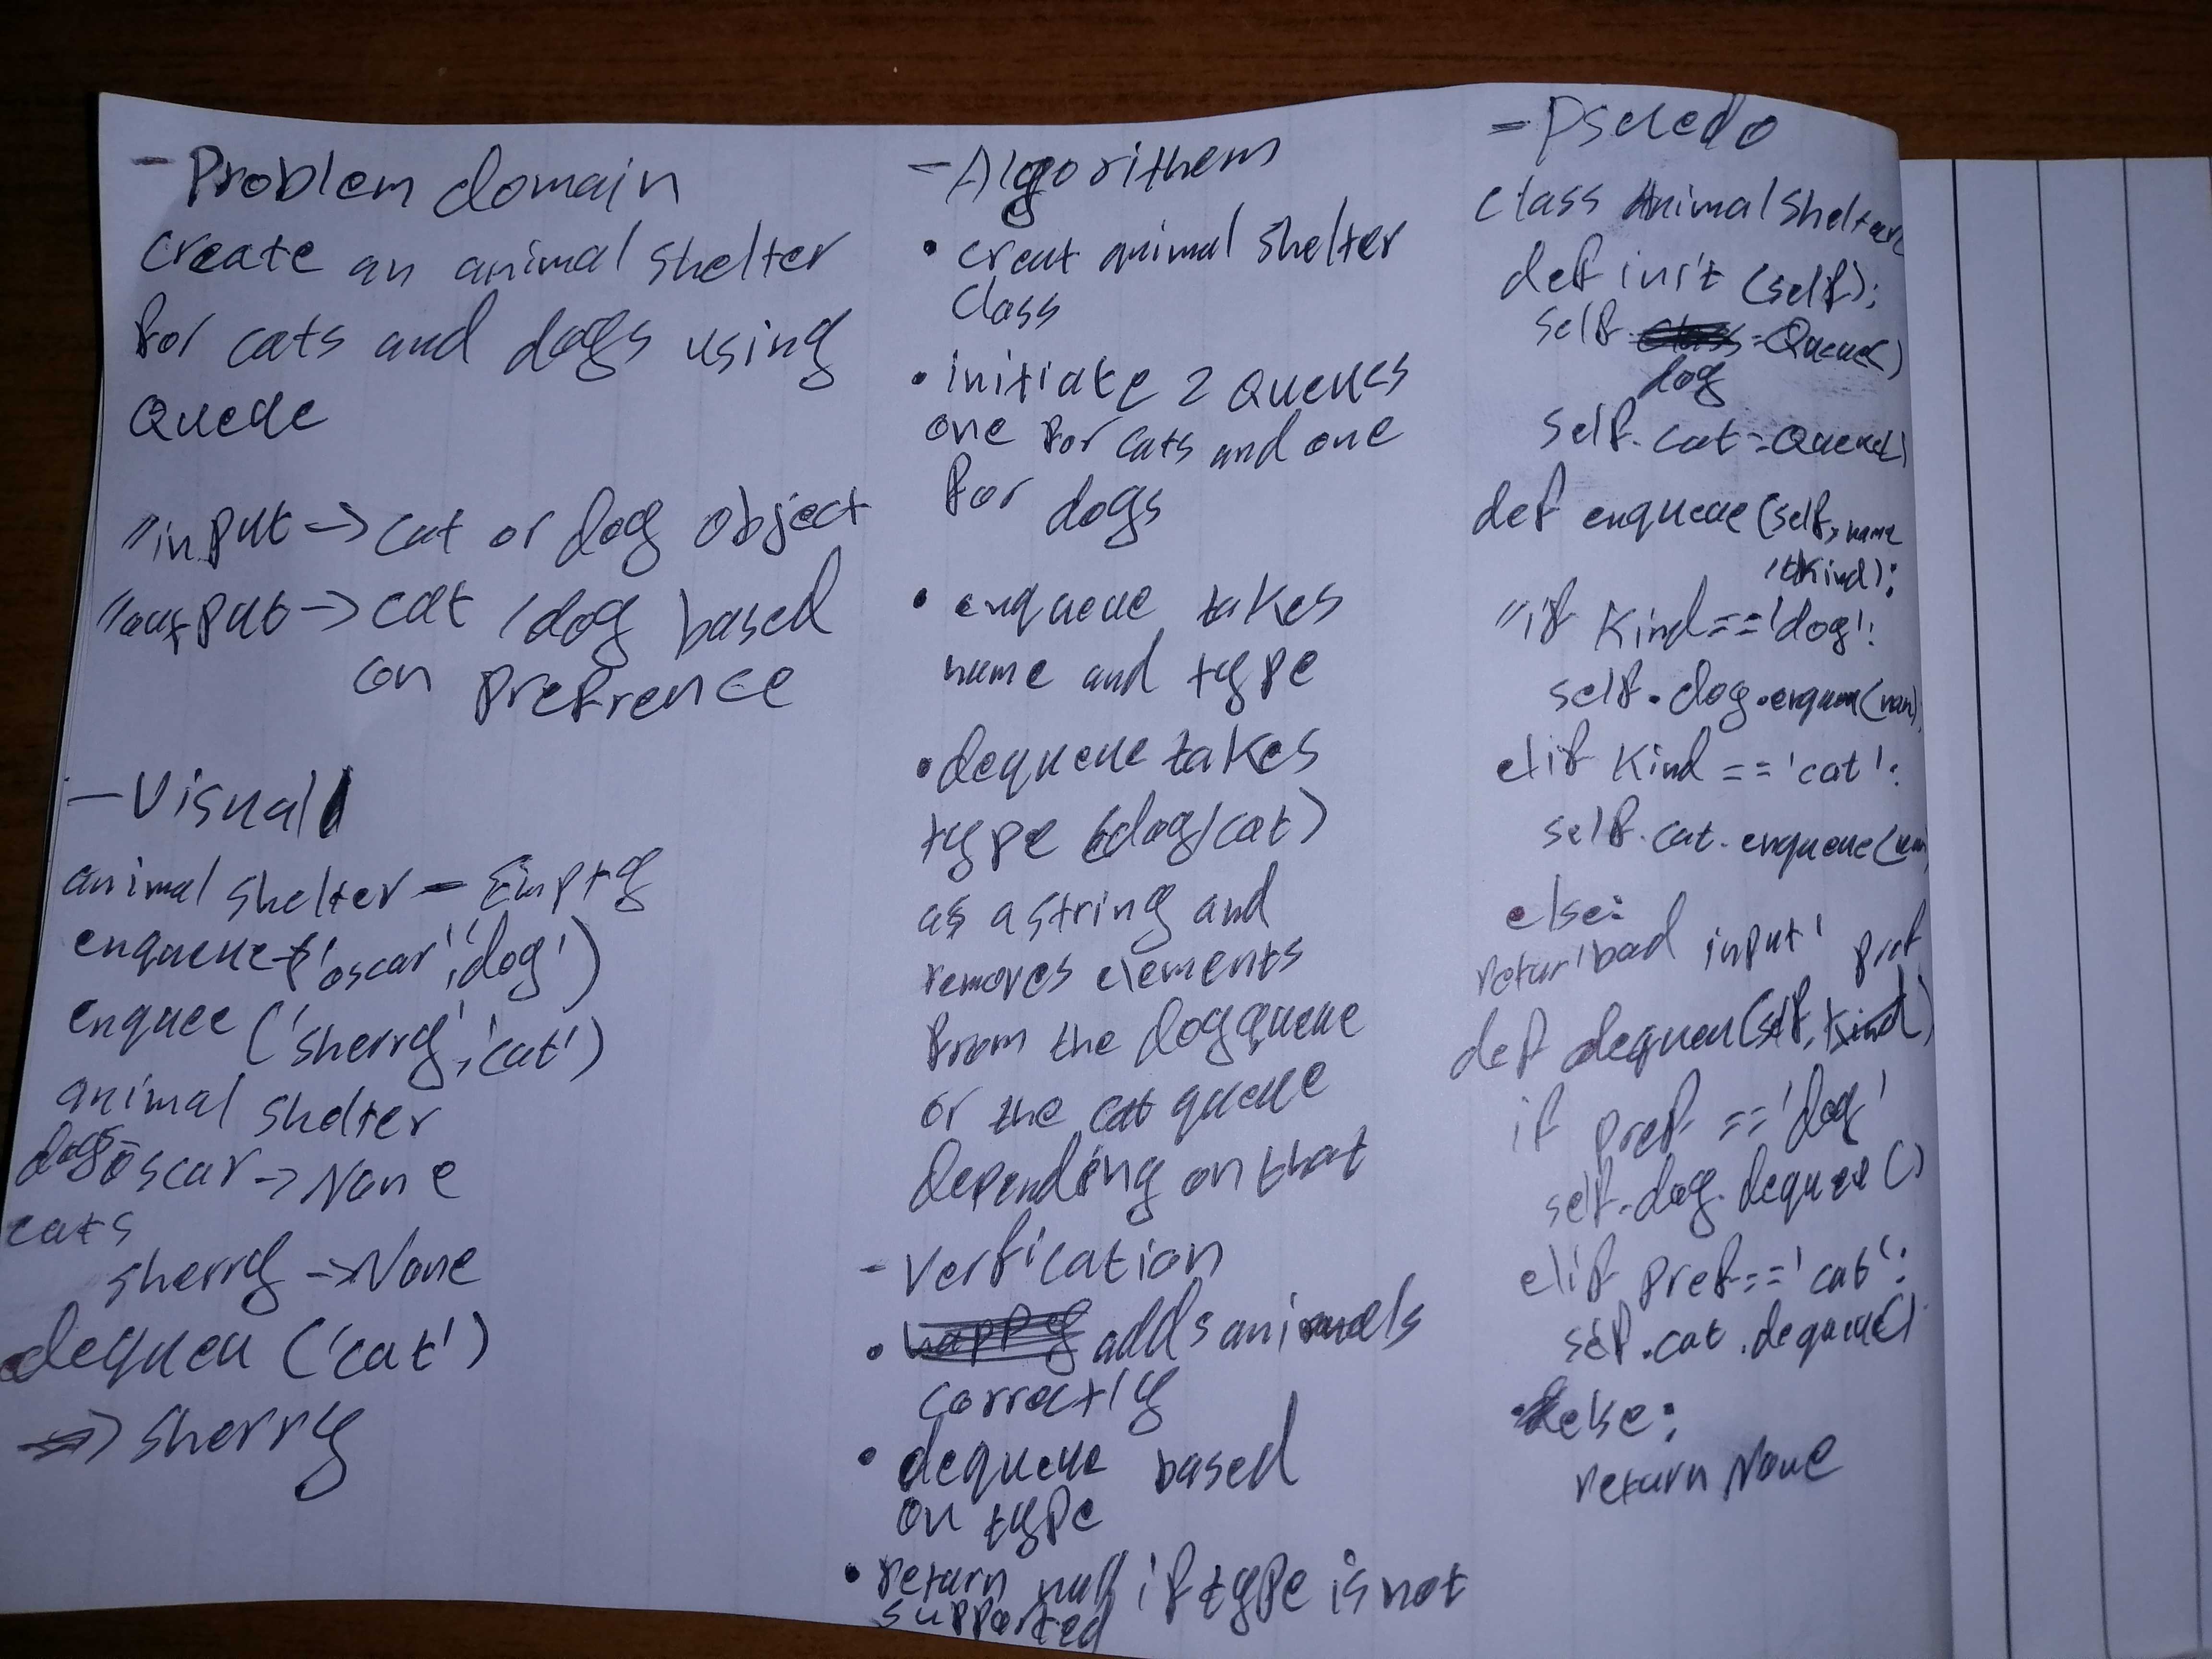 - Problem domain
create an animal shelter
for cats and dogs using
Queue
"input -> cat or dog object
"output -> cat / dog based
on prefrence
- Visual
animal shelter - Empty
enqueue ('oscar', 'dog')
enquee ('sherry', 'cat')
animal shelter
dogs oscar -> None
cats
sherry -> None
dequeu ('cat')
=> sherry
- Algorithem
• creat animal shelter
class
• initiate 2 Queues
one for cats and one
for dogs
• enqueue takes
name and type
• dequeue takes
type (dog/cat)
as a string and
removes elements
from the dog queue
or the cat queue
depending on that
- Verfication
• adds animals
correctly
• dequeue based
on type
• return null if type is not
supported
- Pseuedo
class AnimalShelter
def init (self):
self. = Queue()
dog
self.cat = Queue()
def enqueue (self, name
, kind):
"if kind == 'dog':
self.dog.enqueu(nam)
elif kind == 'cat':
self.cat.enqueue(
else:
retur 'bad input' pref
def dequeu(self, kind)
if pref == 'dog'
self.dog.dequee()
elif pref == 'cat':
self.cat.dequeue()
else:
return None